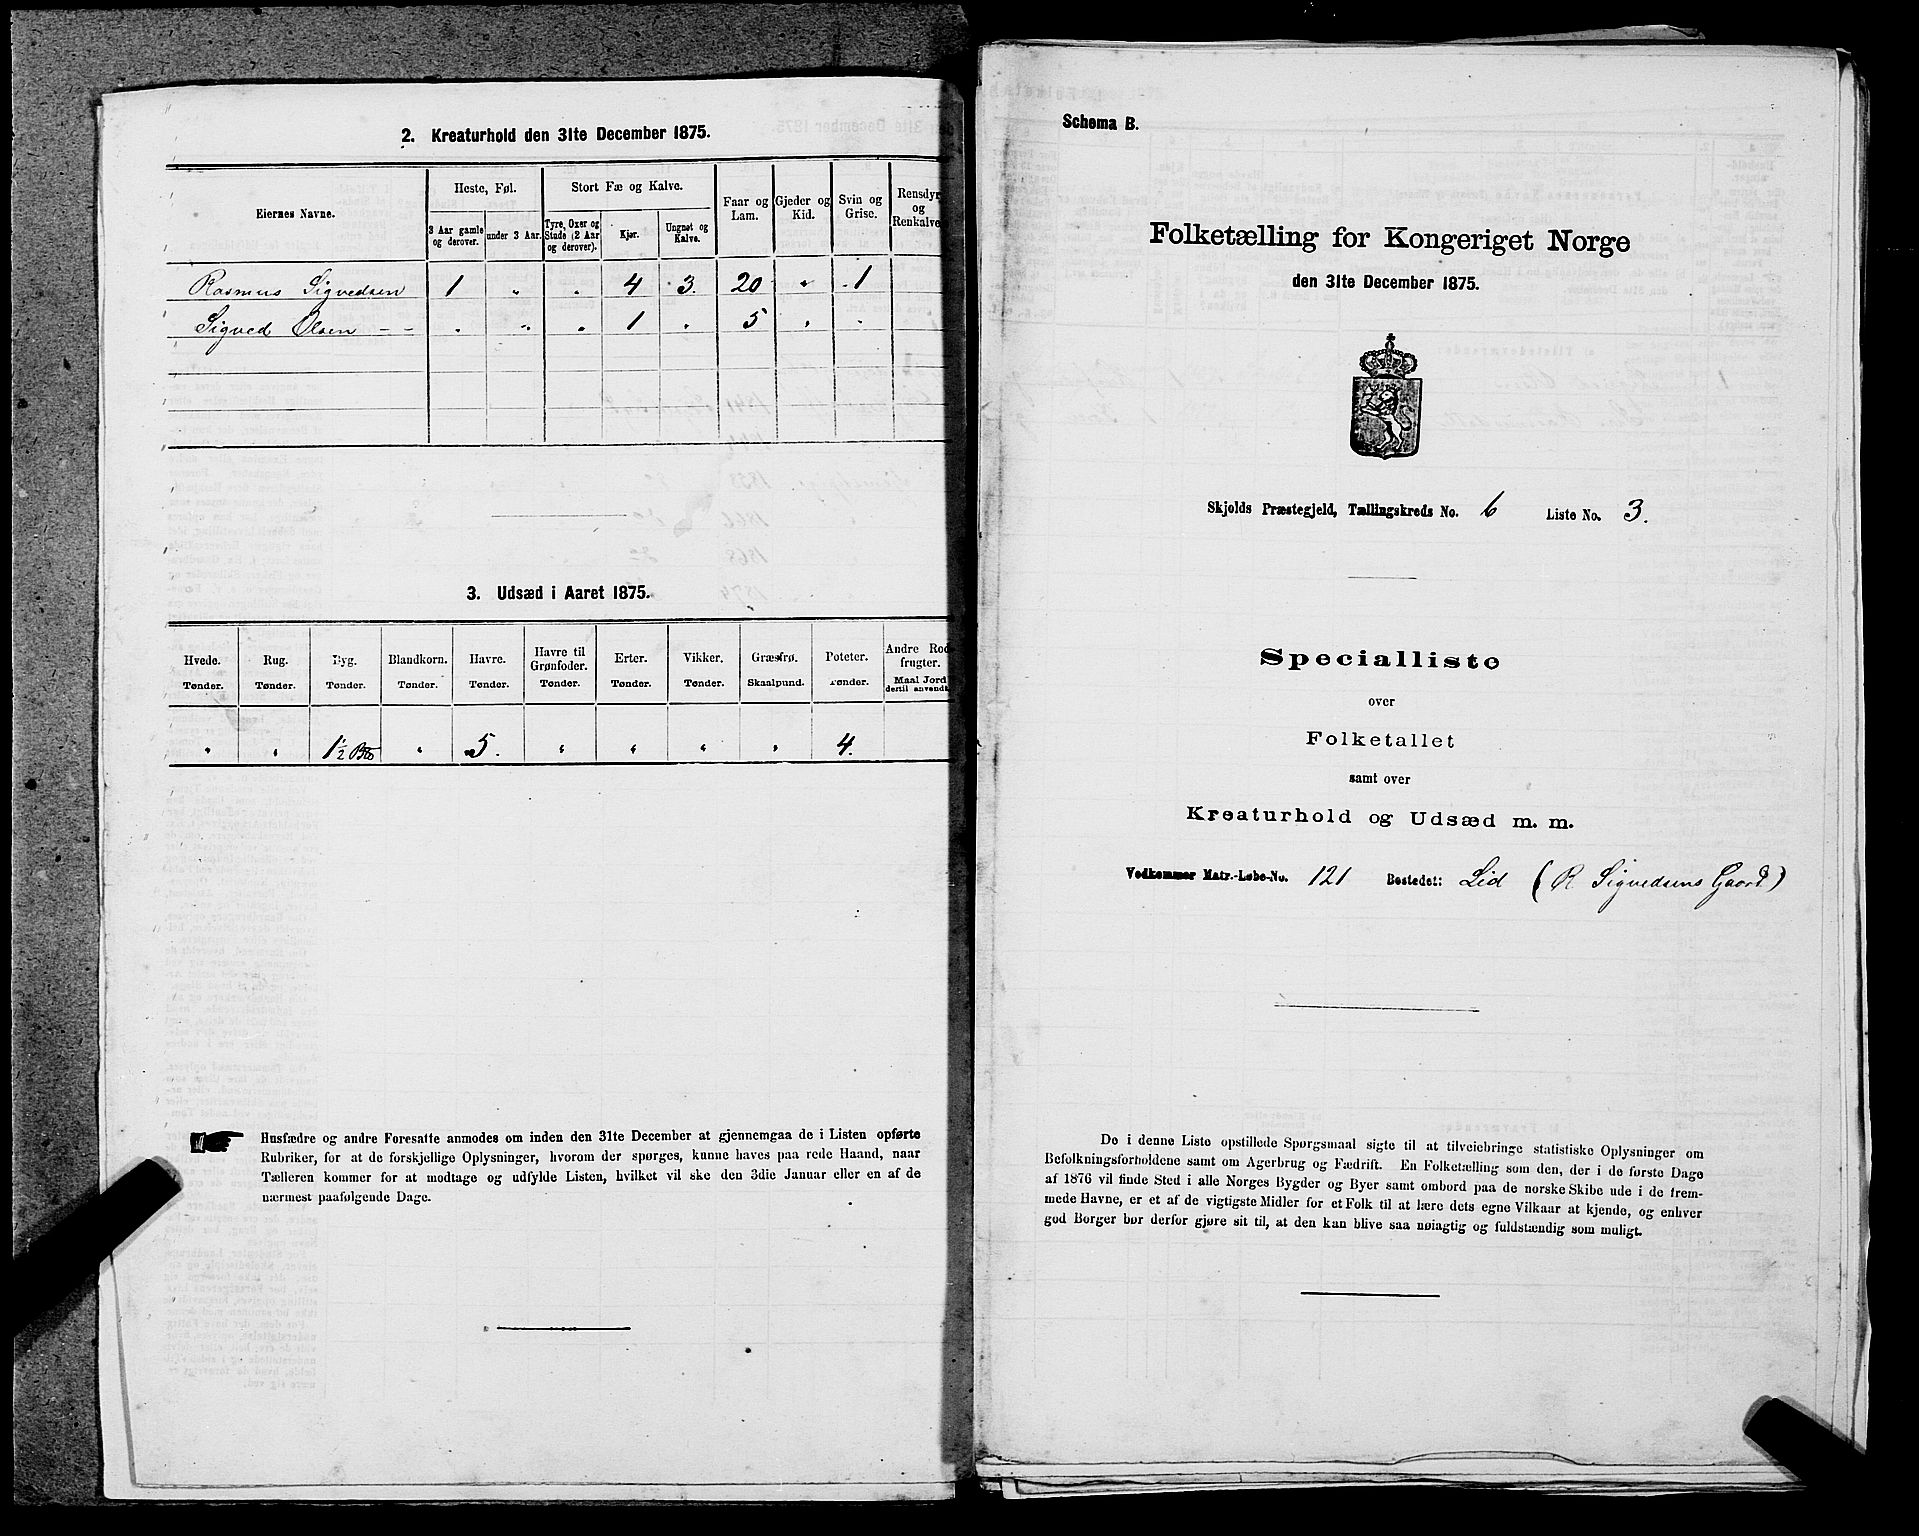 2. Kreaturhold den 31te December 1875.
Eiernes Navne.
Heste, Føl.
3 Aar gamle og derover.
under 3 Aar.
Stort Fæ og Kalve.
Tyre, Oxer og Stude (2 Aar og derover).
Kjør.
Ungnøt og Kalve.
Faar og Lam.
Gjeder og Kid.
Svin og Grise.
Rensdyr og Renkalve
Rasmus Sigvedsen 1 " " 4 3. 20 " 1
Sigved Olsen - - " " " 1 " 5 " "
3. Udsæd i Aaret 1875.
Hvede. Rug. Byg. Blandkorn. Havre. Havre til Grønfoder. Erter. Vikker. Græsfrø. Poteter. Andre Rod frugter.
Tønder. Tønder. Tønder. Tønder. Tønder. Tønder. Tønder. Tønder. Skaalpund. Tønder. Maal Jord dertil anvendt.
" " 1 1/2 " 5. " " " " 4.
Husfædre og andre Foresatte anmodes om inden den 31te December at gjennemgaa de i Listen opførte
Rubriker, for at de forskjellige Oplysninger, hvorom der spørges, kunne haves paa rede Haand, naar
Tælleren kommer for at modtage og udfylde Listen, hvilket vil ske den 3die Januar eller en af de
nærmest paafølgende Dage.
Schema B.
Folketælling for Kongeriget Norge
den 31te December 1875.
Skjolds Præstegjeld, Tællingskreds No. 6 Liste No. 3.
Specialliste
over
Folketallet
samt over
Kreaturhold og Udsæd m. m.
Vedkommer Matr.-Løbe-No. 121 Bostedet: Lid (R Sigvedsens Gaord)
De i denne Liste opstillede Spørgsmaal sigte til at tilveiebringe statistiske Oplysninger om
Befolkningsforholdene samt om Agerbrug og Fædrift. En Folketælling som den, der i de første Dage
af 1876 vil finde Sted i alle Norges Bygder og Byer samt ombord paa de norske Skibe ude i de frem-
mede Havne, er et af de vigtigste Midler for et Folk til at lære dets egne Vilkaar at kjende, og enhver
god Borger bør derfor gjøre sit til, at den kan blive saa nøiagtig og fuldstændig som muligt.